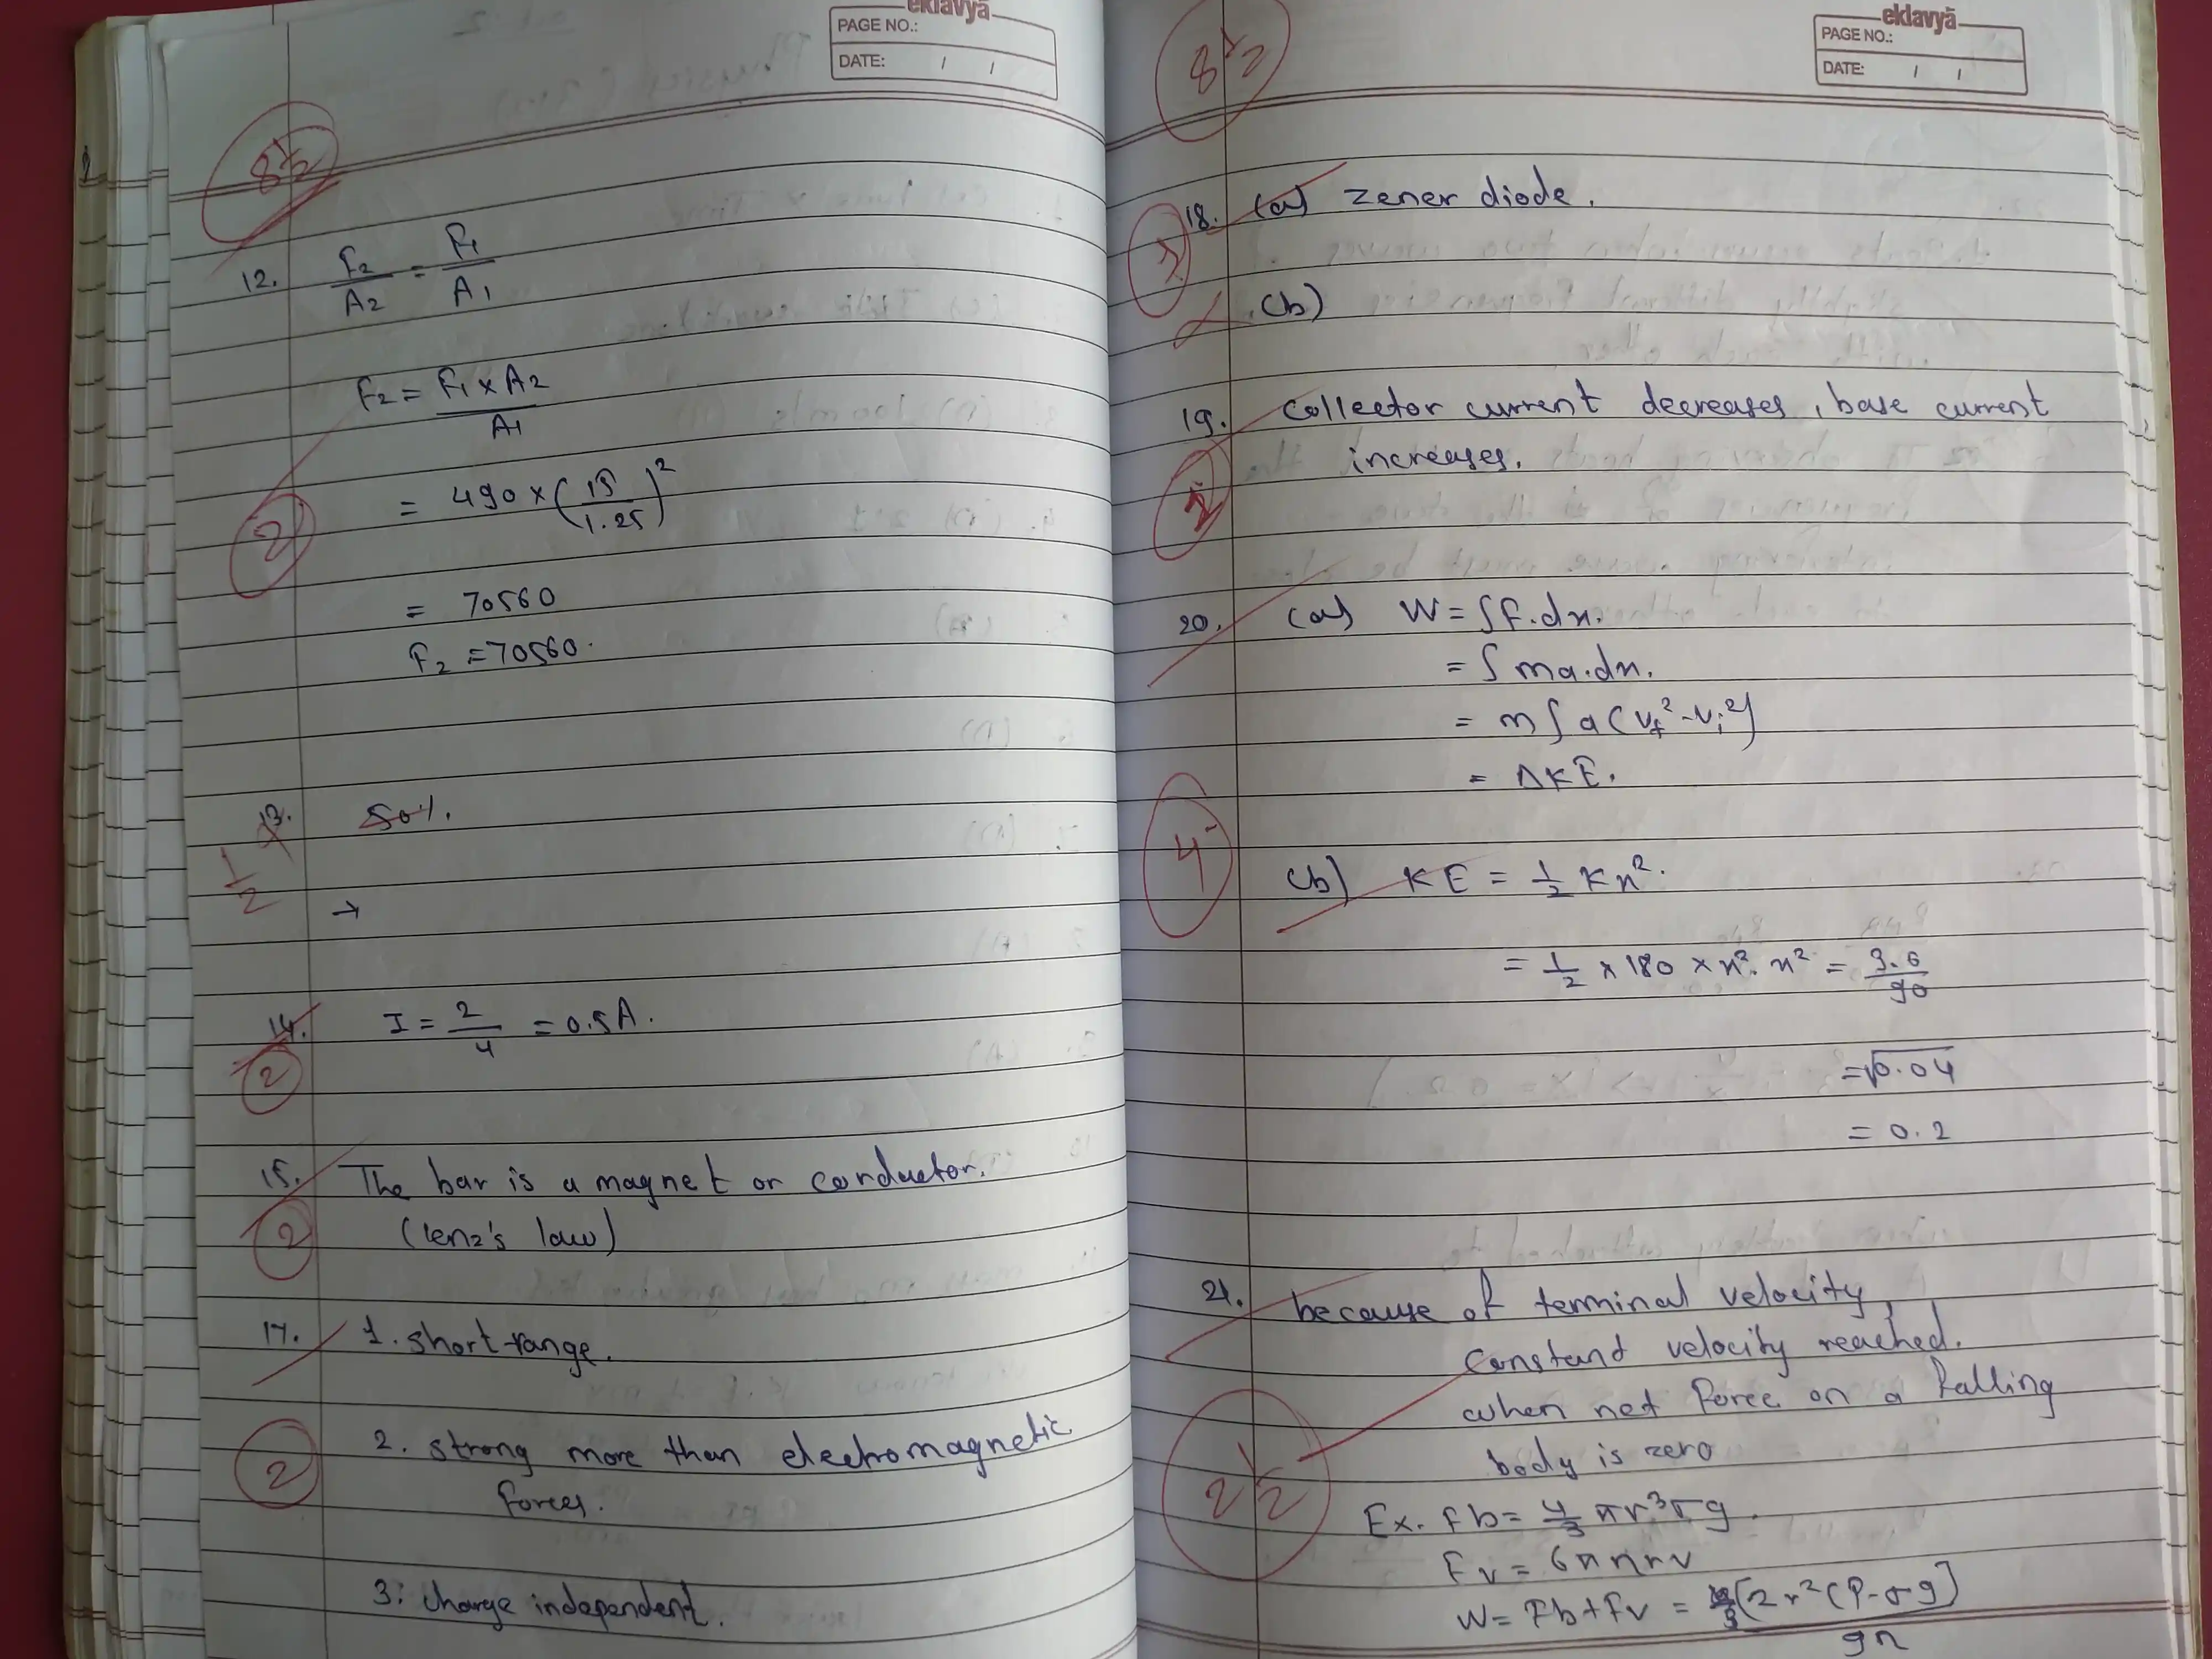 eklavyā
PAGE NO.:
DATE: / /
8½
12. F₂/A₂ = F₁/A₁
F₂ = F₁ x A₂ / A₁
= 490 x (15/1.25)²
2
= 70560
F₂ = 70560.
13. 50%.
½
→
14. I = 2/4 = 0.5A.
2
15. The bar is a magnet or conductor.
(lenz's law)
2
17. 1. short-range.
2. strong more than electromagnetic
forces.
2
3. charge independent.
eklavyā
PAGE NO.:
DATE: / /
8½
18. (a) zener diode.
(b)
19. collector current decreases, base current
increases.
20. (a) W = ∫F.dx.
= ∫ma.dx.
= m∫a(vf²-vi²)
= ΔKE.
4
(b) KE = ½ Kx².
= ½ x 180 x x². x² = 3.6/90
= √0.04
= 0.2
21. because of terminal velocity,
Constand velocity reached.
when net force on a falling
body is zero
2½
Ex. Fb = 4/3 πr³σg.
Fv = 6πηrv
W = Fb + Fv = [2r²(ρ-σg] / 9η